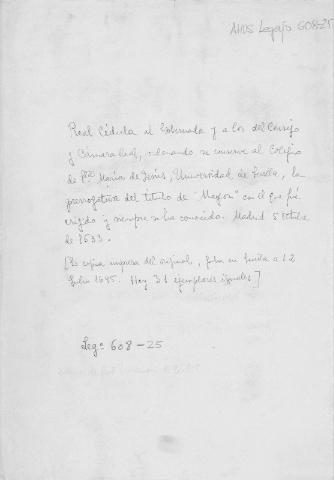 AHUS Legajo 608-25
Real Cédula al Gobernador y a los del Consejo
y Cámara Real, ordenando se conserve al Colegio
de Sta María de Jesús, Universidad de Sevilla, la
prerrogativa del título de "Mayor" con el que fué
erigido y siempre se ha conocido. Madrid 5
de 1633.
[Es copia impresa del original, fecha en Sevilla a 12
Julio 1695. Hay 31 ejemplares iguales]
Legº 608-25